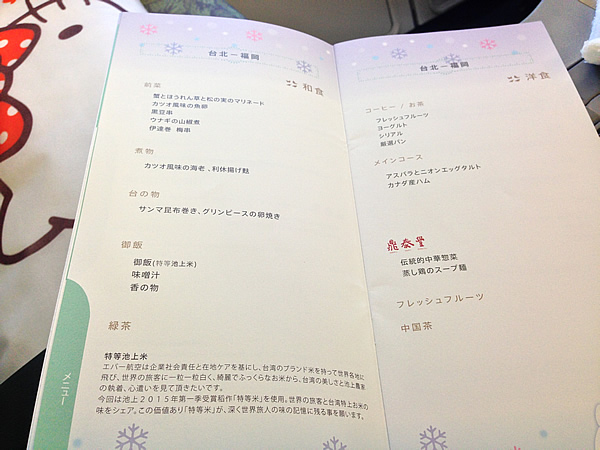 台北－福岡
和食
前菜
蟹とほうれん草と松の実のマリネード
カツオ風味の魚卵
黒豆串
ウナギの山椒煮
伊達巻 梅串
煮物
カツオ風味の海老、利休揚げ麩
台の物
サンマ昆布巻き、グリンピースの卵焼き
御飯
御飯(特等池上米)
味噌汁
香の物
緑茶
特等池上米
エバー航空は企業社会責任と在地ケアを基にし、台湾のブランド米を持って世界各地に
飛び、世界の旅客に一粒一粒白く、綺麗でふっくらなお米から、台湾の美しさと池上農家
の執着、心遣いを見て頂きたいです。
今回は池上２０１５年第一季受賞稻作「特等米」を使用。世界の旅客と台湾特上お米の
味をシェア。この価値あり「特等米」が、深く世界旅人の味の記憶に残る事を願います。
メニュー
台北－福岡
洋食
コーヒー / お茶
フレッシュフルーツ
ヨーグルト
シリアル
厳選パン
メインコース
アスパラとニオンエッグタルト
カナダ産ハム
鼎泰豐
伝統的中華惣菜
蒸し鶏のスープ麺
フレッシュフルーツ
中国茶